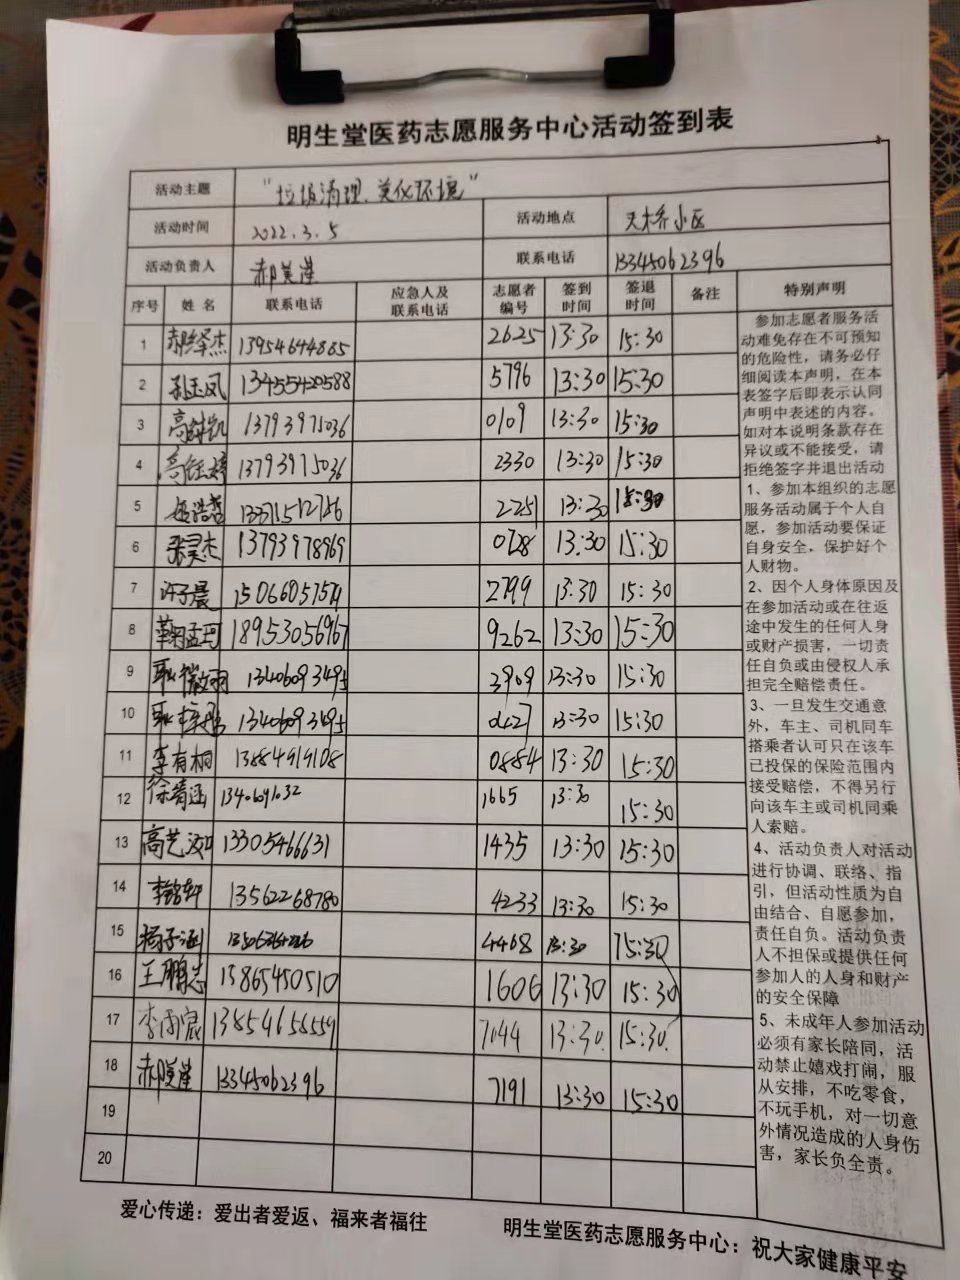 明生堂医药志愿服务中心活动签到表
活动主题 "垃圾清理、美化环境"
活动时间 2022.3.5 活动地点 天桥小区
活动负责人 联系电话 13345062396
序号 姓名 联系电话 应急人及联系电话 志愿者编号 签到时间 签退时间 备注 特别声明
1 13954644865 2625 13:30 15:30
2 孙玉凤 13455420588 5796 13:30 15:30
3 13793975036 0109 13:30 15:30
4 13793975036 2330 13:30 15:30
5 2251 13:30 15:30
6 张昊杰 13793978969 0728 13:30 15:30
7 许子晨 2799 13:30 15:30
8 鞠孟珂 18953056967 9262 13:30 15:30
9 耿微雨 13406093495 3909 13:30 15:30
10 13406093495 0427 13:30 15:30
11 李有桐 13884919108 0884 13:30 15:30
12 徐清涵 1665 13:30 15:30
13 13305466631 1435 13:30 15:30
14 李铭轩 13562268780 4233 13:30 15:30
15 杨子涵 4468 13:30 15:30
16 王鹏志 13865450510 1606 13:30 15:30
17 李雨宸 13854656559 7044 13:30 15:30
18 13345062396 7191 13:30 15:30
19
20
参加志愿者服务活
动难免存在不可预知
的危险性，请务必仔
细阅读本声明，在本
表签字后即表示认同
声明中表述的内容。
如对本说明条款存在
异议或不能接受，请
拒绝签字并退出活动
1、参加本组织的志愿
服务活动属于个人自
愿，参加活动要保证
自身安全，保护好个
人财物。
2、因个人身体原因及
在参加活动或在往返
途中发生的任何人身
或财产损害，一切责
任自负或由侵权人承
担完全赔偿责任。
3、一旦发生交通意
外，车主、司机同车
搭乘者认可只在该车
已投保的保险范围内
接受赔偿，不得另行
向该车主或司机同乘
人索赔。
4、活动负责人对活动
进行协调、联络、指
引，但活动性质为自
由结合、自愿参加，
责任自负。活动负责
人不担保或提供任何
参加人的人身和财产
的安全保障
5、未成年人参加活动
必须有家长陪同，活
动禁止嬉戏打闹，服
从安排，不吃零食，
不玩手机，对一切意
外情况造成的人身伤
害，家长负全责。
爱心传递：爱出者爱返、福来者福往
明生堂医药志愿服务中心：祝大家健康平安